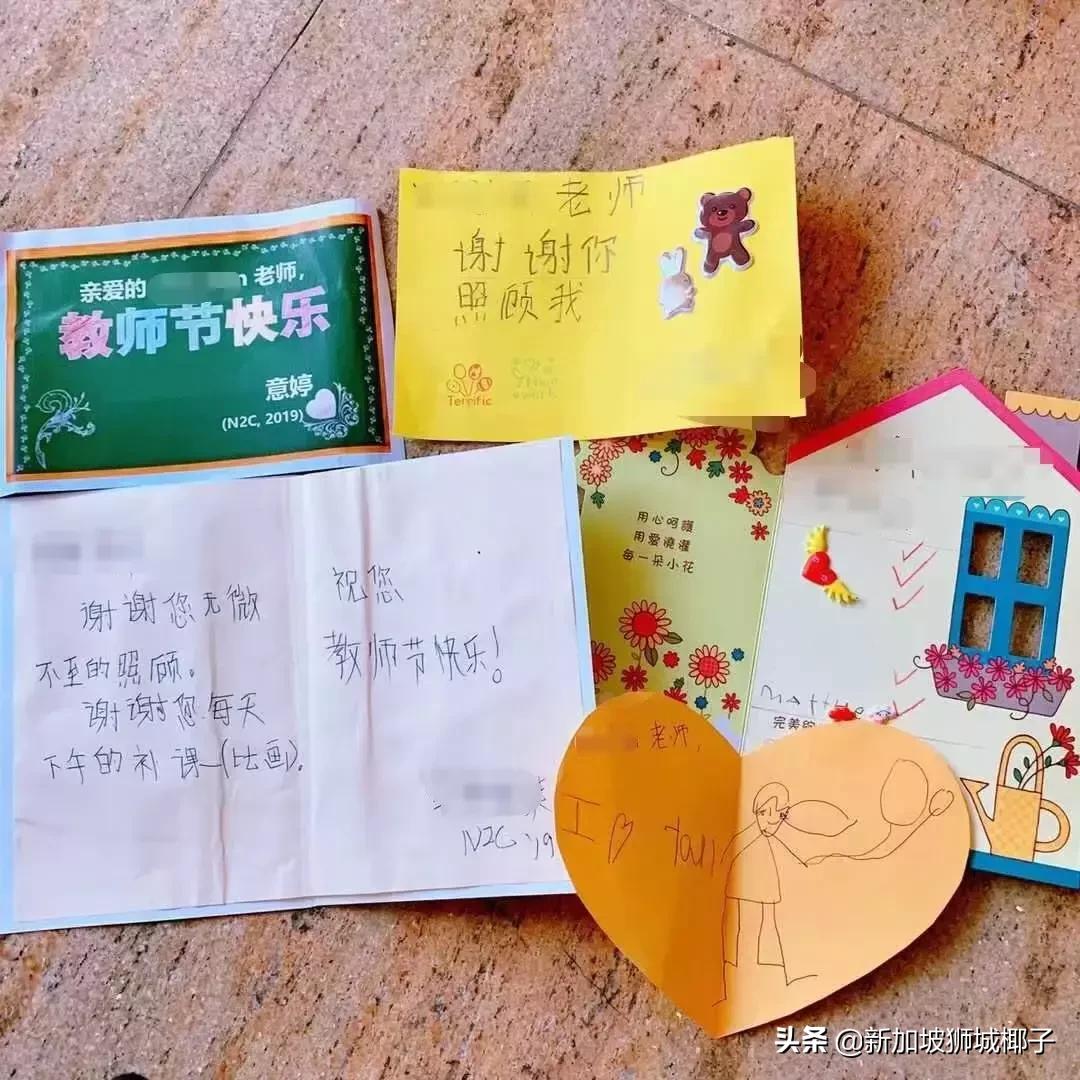 亲爱的 n 老师,
教师节快乐
意婷
(N2C, 2019)
老师
谢谢你
照顾我
Terrific
谢谢您无微
不至的照顾。
谢谢您每天
下午的补课(比画)。
祝您
教师节快乐!
N2C '19
用心呵護
用爱澆灌
每一朵小花
matthew
完美的
老师,
I
头条 @新加坡狮城椰子